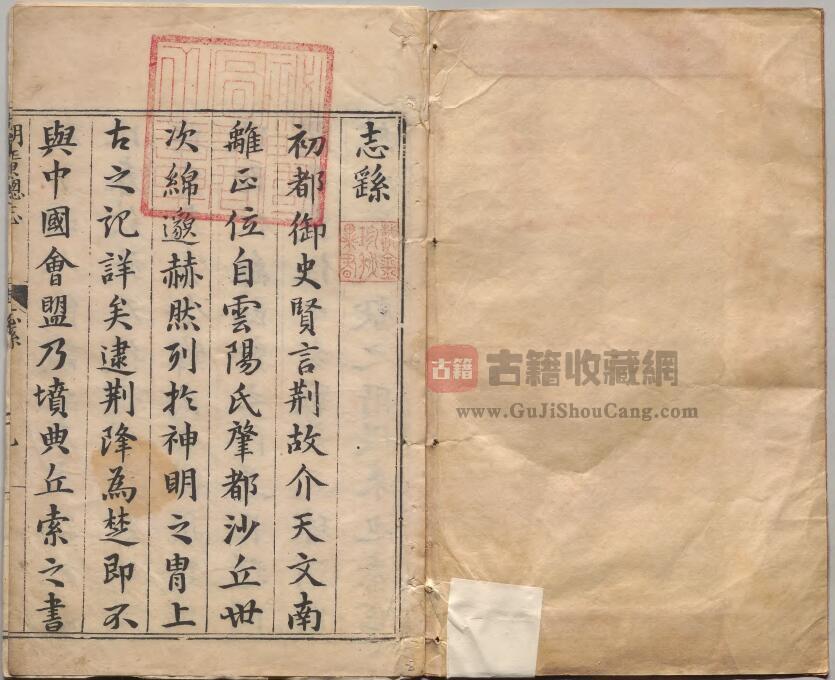 志繇
初都御史賢言荆故介天文南
離正位自雲陽氏肇都沙丘世
次綿邈赫然列扵神明之胄上
古之記詳矣逮荆降為楚即不
與中國會盟乃墳典丘索之書
湖廣總志
志繇
古籍
古籍收藏網
www.GuJiShouCang.com